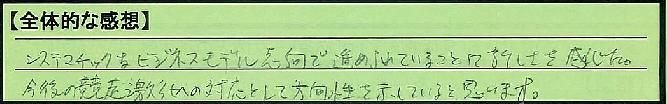 【全体的な感想】
システマチックなビジネスモデル志向で進められていることに新しさを感じた。
今後の競走激化への対応として方向性を示していると思います。